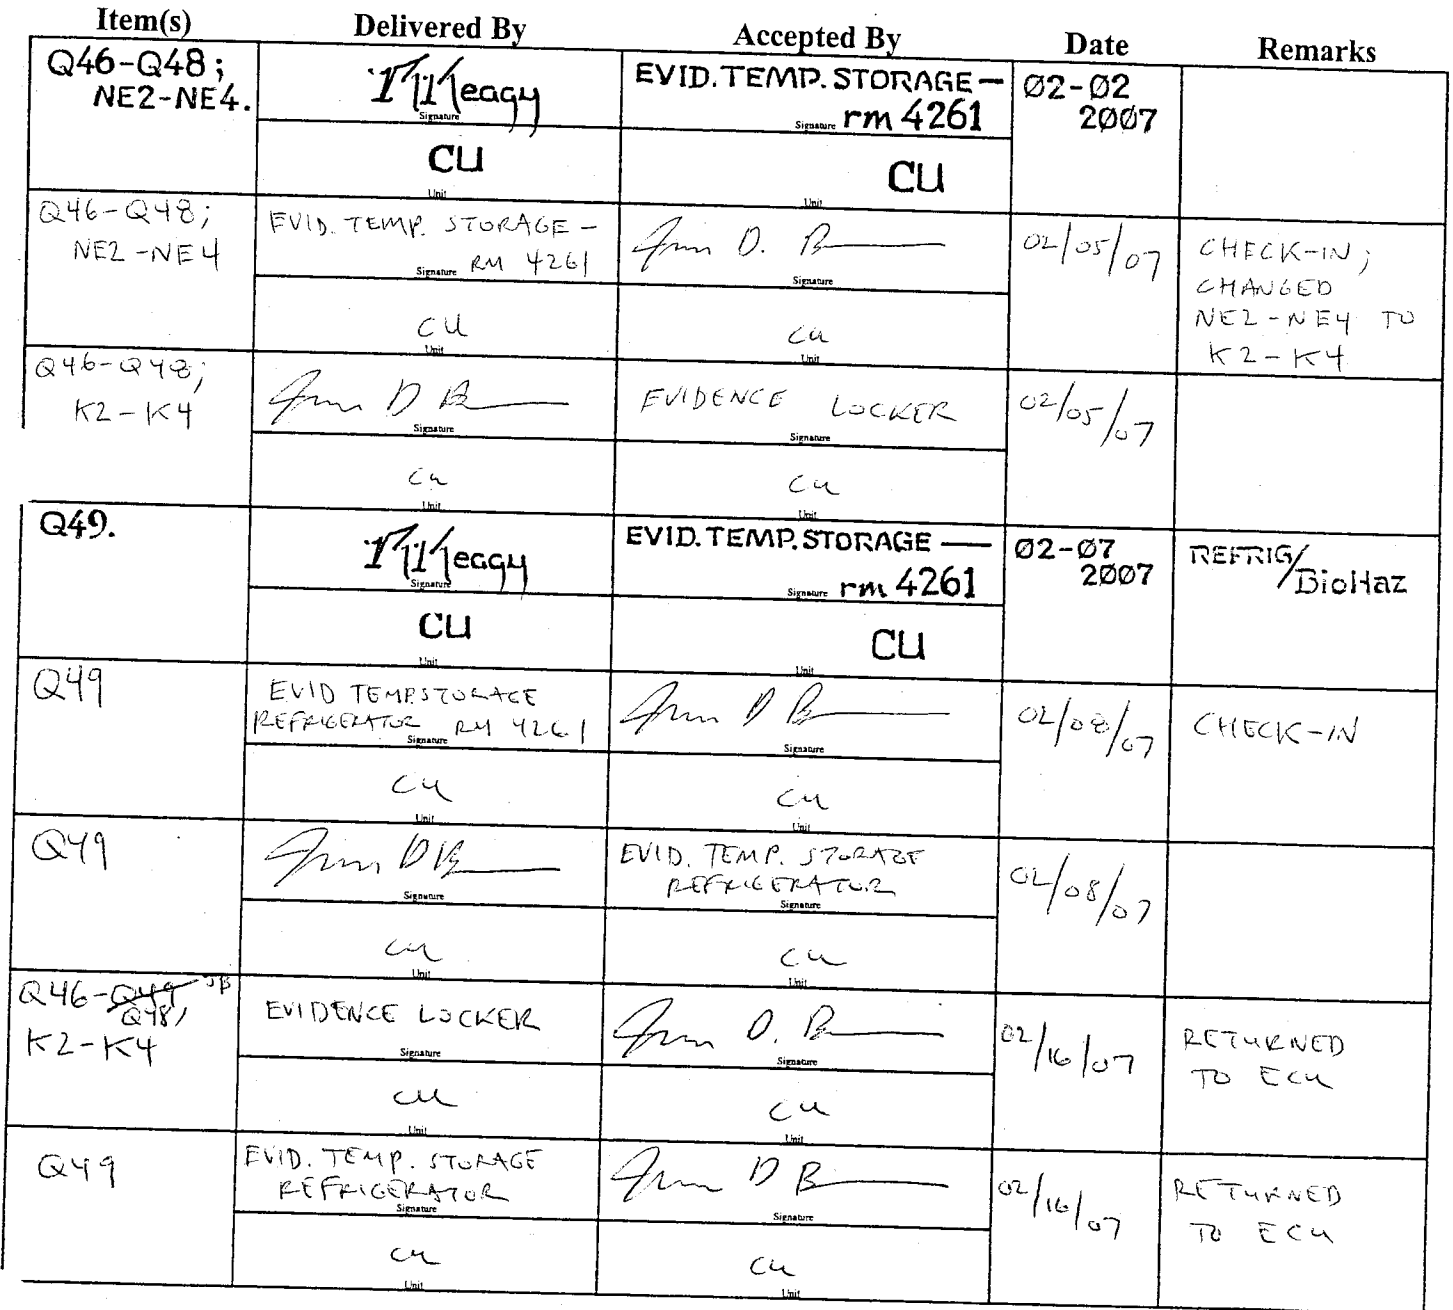 Item(s) Delivered By Accepted By Date Remarks
Q46-Q48;
NE2-NE4.
Signature
CU
Unit
EVID. TEMP. STORAGE —
Signature rm 4261
CU
Unit
02-02
2007
Q46-Q48;
NE2-NE4
EVID. TEMP. STORAGE -
Signature RM 4261
CU
Unit
D.
Signature
CU
Unit
02/05/07
CHECK-IN;
CHANGED
NE2-NE4 TO
K2-K4
Q46-Q48;
K2-K4
D
Signature
CU
Unit
EVIDENCE LOCKER
Signature
CU
Unit
02/05/07
Q49.
Signature
CU
Unit
EVID. TEMP. STORAGE —
Signature rm 4261
CU
Unit
02-07
2007
REFRIG/
BioHaz
Q49
EVID TEMP. STORAGE
REFRIGERATOR RM 4261
Signature
CU
Unit
D
Signature
CU
Unit
02/08/07
CHECK-IN
Q49
D
Signature
CU
Unit
EVID. TEMP. STORAGE
REFRIGERATOR
Signature
CU
Unit
02/08/07
Q46-Q49 JB
Q48,
K2-K4
EVIDENCE LOCKER
Signature
CU
Unit
D.
Signature
CU
Unit
02/16/07
RETURNED
TO ECU
Q49
EVID. TEMP. STORAGE
REFRIGERATOR
Signature
CU
Unit
D
Signature
CU
Unit
02/16/07
RETURNED
TO ECU